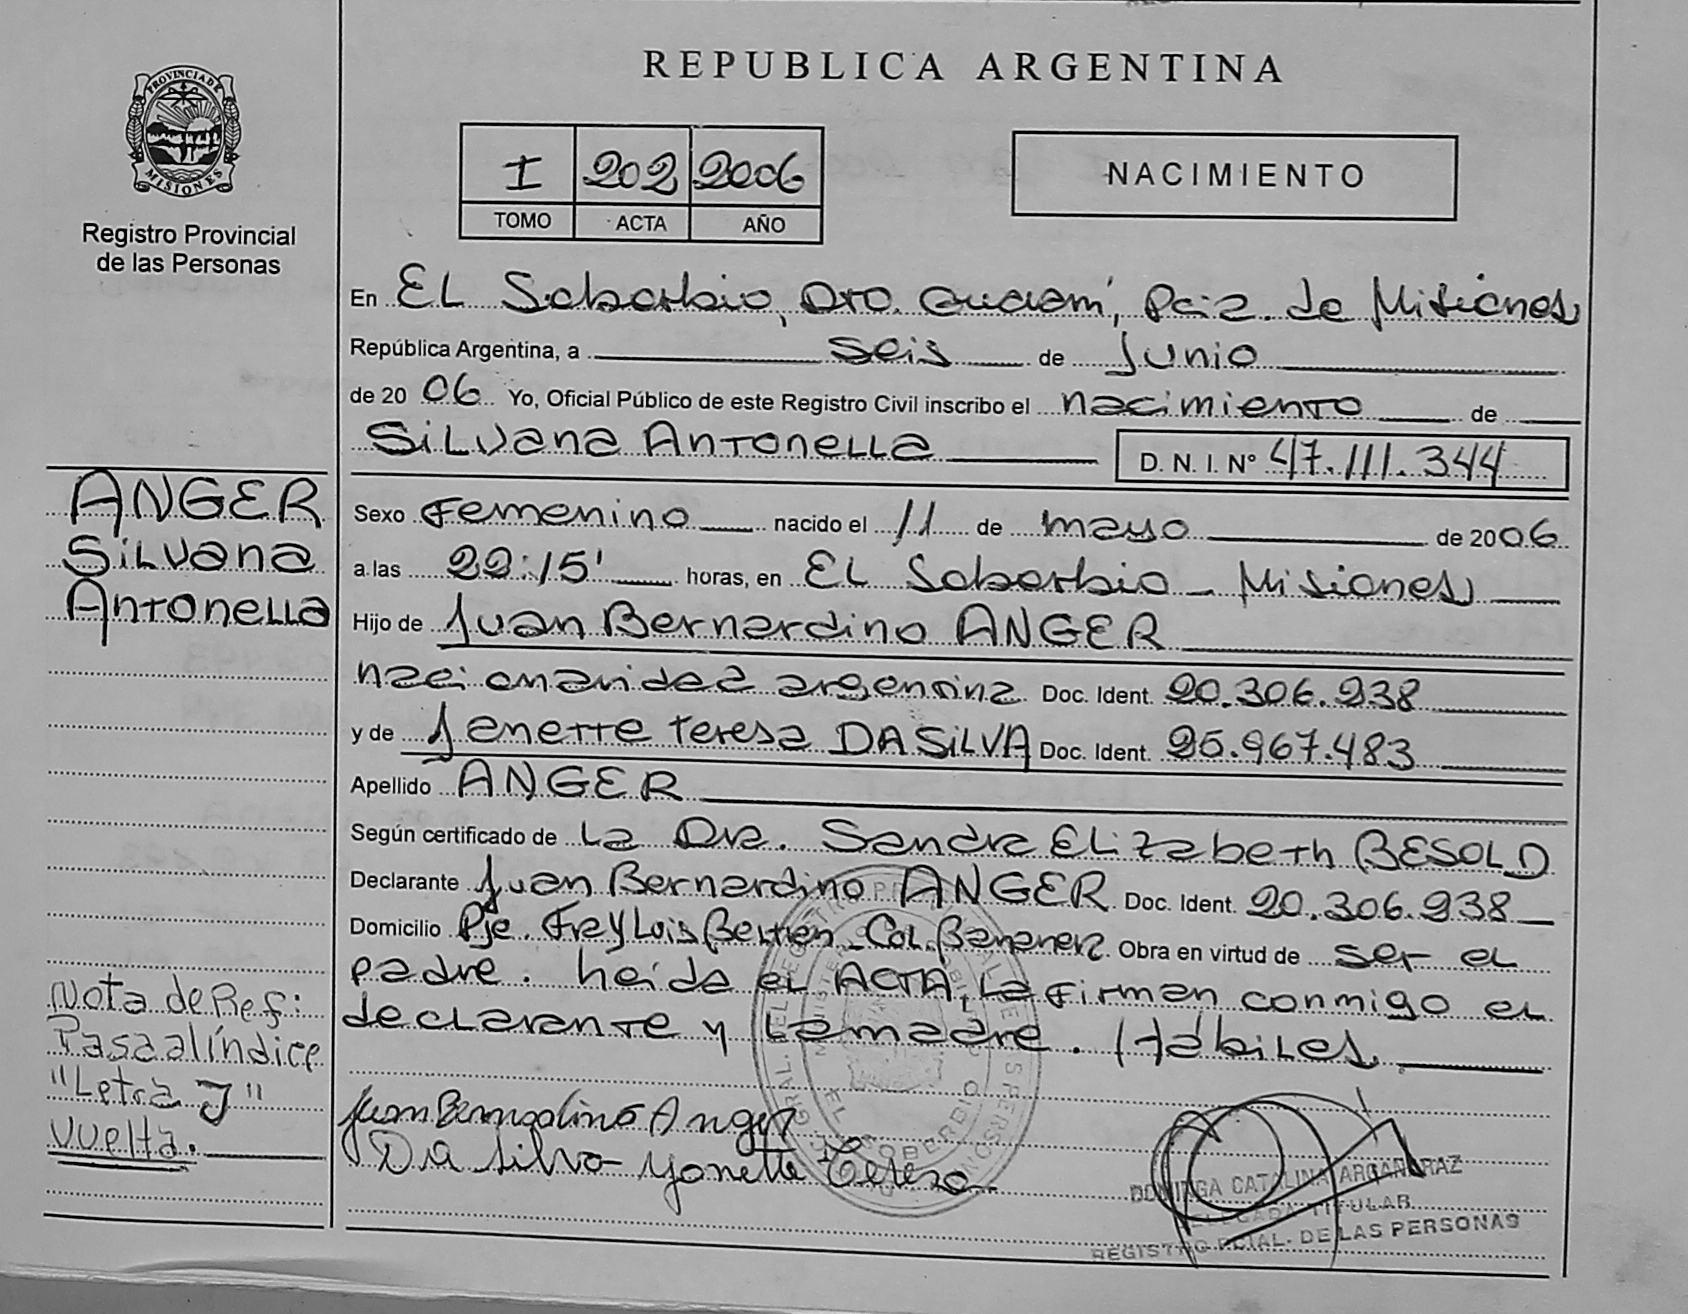 REPUBLICA ARGENTINA
PROVINCIA DE MISIONES
Registro Provincial
de las Personas
I 202 2006
TOMO ACTA AÑO
NACIMIENTO
En EL Soberbio, Dto. Guaraní, Pcia. de Misiones
República Argentina, a seis de Junio
de 2006 Yo, Oficial Público de este Registro Civil inscribo el nacimiento de
Silvana Antonella D. N. I. Nº 47.111.344
ANGER
Silvana
Antonella
Sexo Femenino nacido el 11 de mayo de 2006
a las 22:15' horas, en EL Soberbio - Misiones
Hijo de Juan Bernardino ANGER
nacionalidad argentina Doc. Ident. 20.306.938
y de Jenette Teresa DA SILVA Doc. Ident. 25.967.483
Apellido ANGER
Según certificado de La Dra. Sandra Elizabeth BESOLD
Declarante Juan Bernardino ANGER Doc. Ident. 20.306.938
Domicilio Pje. Fray Luis Beltrán - Col. Bananera Obra en virtud de ser el
padre. Leída el ACTA, La firman conmigo el
declarante y La madre. Hábiles.
Nota de Ref:
Pasa al índice
"Letra J"
Vuelta.
Juan Bernardino Anger
Da Silva Yanette Teresa
DOMINGA CATALINA ARGAÑARAZ
DELEGADA TITULAR
REGISTRO PCIAL. DE LAS PERSONAS